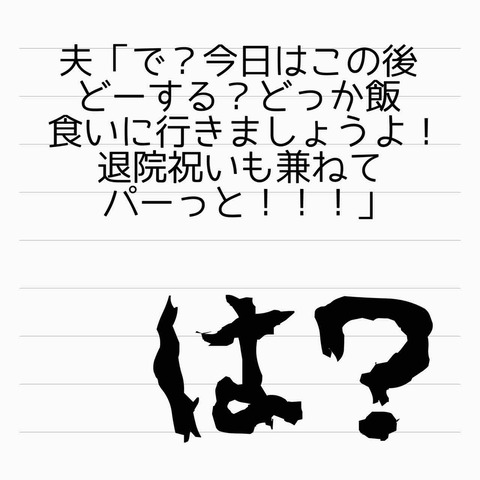 夫「で？今日はこの後
どーする？どっか飯
食いに行きましょうよ！
退院祝いも兼ねて
パーっと！！！」
は？